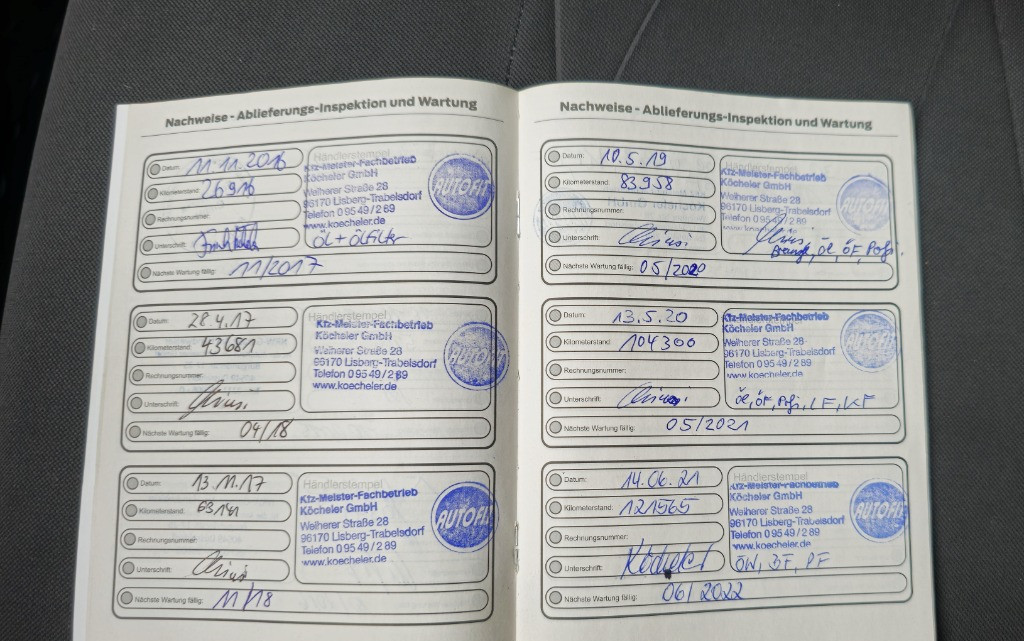 Nachweise - Ablieferungs-Inspektion und Wartung
Datum: 11.11.2016
Kilometerstand: 26916
Rechnungsnummer:
Unterschrift:
Nächste Wartung fällig: 11/2017
Händlerstempel
Kfz-Meister-Fachbetrieb
Köcheler GmbH
Weiherer Straße 28
96170 Lisberg-Trabelsdorf
Telefon 0 95 49 / 2 89
www.koecheler.de
Öl + Ölfilter
AUTOFIT
Datum: 28.4.17
Kilometerstand: 43681
Rechnungsnummer:
Unterschrift:
Nächste Wartung fällig: 04/18
Händlerstempel
Kfz-Meister-Fachbetrieb
Köcheler GmbH
Weiherer Straße 28
96170 Lisberg-Trabelsdorf
Telefon 0 95 49 / 2 89
www.koecheler.de
AUTOFIT
Datum: 13.11.17
Kilometerstand: 63141
Rechnungsnummer:
Unterschrift:
Nächste Wartung fällig: 11/18
Händlerstempel
Kfz-Meister-Fachbetrieb
Köcheler GmbH
Weiherer Straße 28
96170 Lisberg-Trabelsdorf
Telefon 0 95 49 / 2 89
www.koecheler.de
AUTOFIT
Nachweise - Ablieferungs-Inspektion und Wartung
Datum: 10.5.19
Kilometerstand: 83958
Rechnungsnummer:
Unterschrift:
Nächste Wartung fällig: 05/2020
Händlerstempel
Kfz-Meister-Fachbetrieb
Köcheler GmbH
Weiherer Straße 28
96170 Lisberg-Trabelsdorf
Telefon 0 95 49 / 2 89
www.koecheler.de
Öl, ÖF, Pofi.
AUTOFIT
Datum: 13.5.20
Kilometerstand: 104300
Rechnungsnummer:
Unterschrift:
Nächste Wartung fällig: 05/2021
Händlerstempel
Kfz-Meister-Fachbetrieb
Köcheler GmbH
Weiherer Straße 28
96170 Lisberg-Trabelsdorf
Telefon 0 95 49 / 2 89
www.koecheler.de
Öl, ÖF, Pofi, LF, KF
AUTOFIT
Datum: 14.06.21
Kilometerstand: 121565
Rechnungsnummer:
Unterschrift:
Nächste Wartung fällig: 06/2022
Händlerstempel
Kfz-Meister-Fachbetrieb
Köcheler GmbH
Weiherer Straße 28
96170 Lisberg-Trabelsdorf
Telefon 0 95 49 / 2 89
www.koecheler.de
ÖW, BF, PF
AUTOFIT